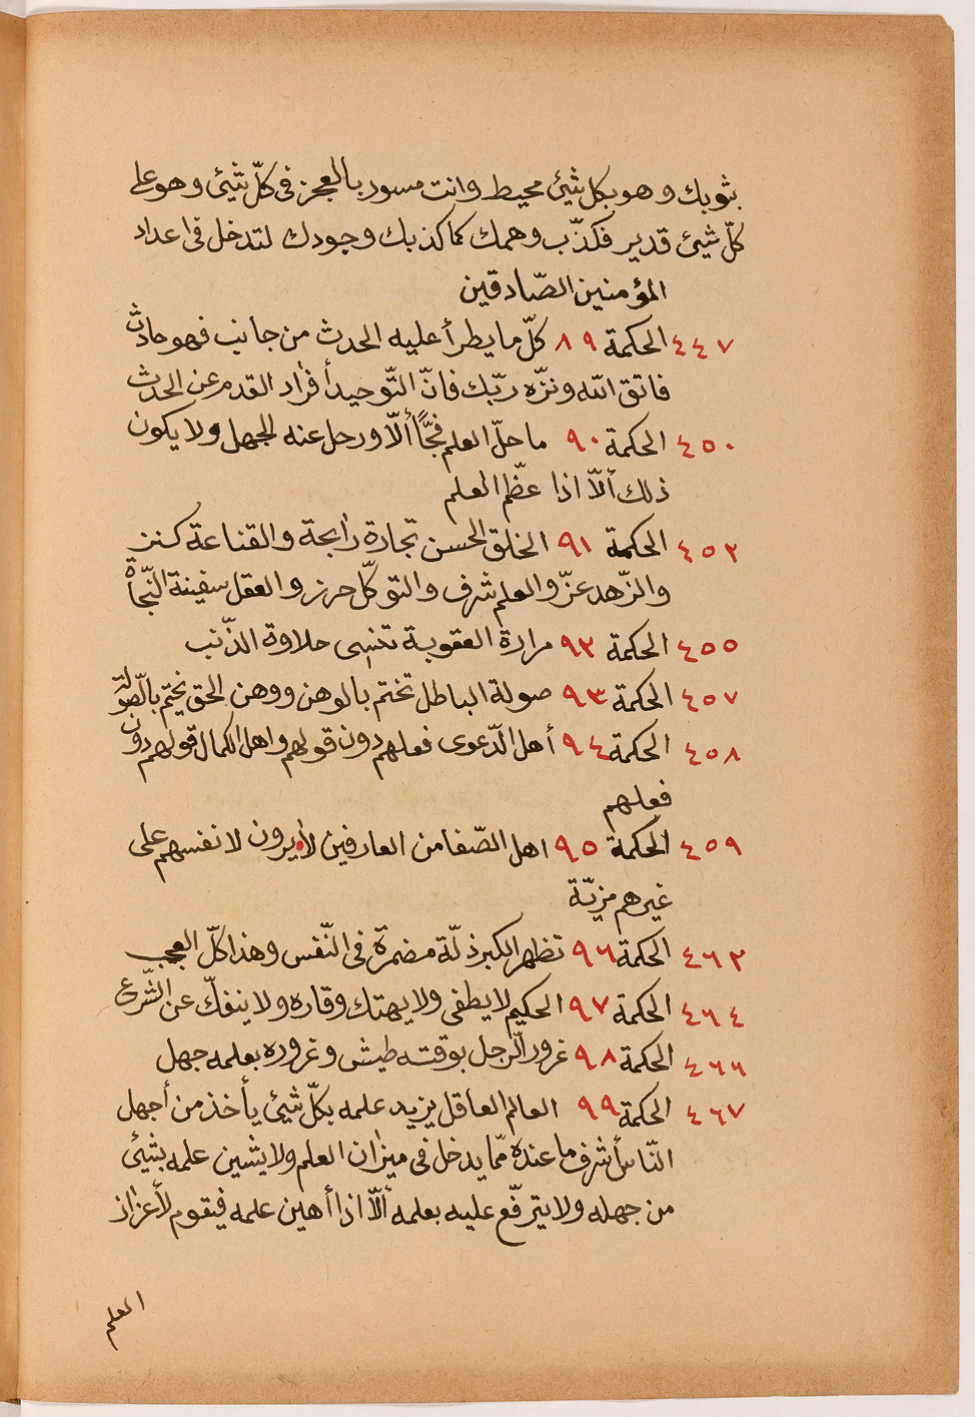 بثوبك وهو بكل شيئ محيط وانت مسور بالعجز فى كلّ شيئ وهو على
كلّ شيئ قدير فكذّب وهمك كما كذبك وجودك لتدخل فى اعداد
المؤمنين الصّادقين
٤٤٧ الحكمة ٨٩ كلّ ما يطرأ عليه الحدث من جانب فهو حادث
فاتق الله ونزّه ربّك فانّ التّوحيد أفراد القدم عن الحدث
٤٥٠ الحكمة ٩٠ ما حلّ العلم فجّاً ألّا ورحل عنه الجهل ولا يكون
ذلك ألاّ اذا عظّم العلم
٤٥٢ الحكمة ٩١ الخلق الحسن تجارة رابحة والقناعة كنز
والزّهد عزّ والعلم شرف والتوكّل حرز والعقل سفينة النّجاة
٤٥٥ الحكمة ٩٢ مرارة العقوبة تنسى حلاوة الذّنب
٤٥٧ الحكمة ٩٣ صولة الباطل تختم بالوهن ووهن الحق يختم بالصّولة
٤٥٨ الحكمة ٩٤ أهل الدّعوى فعلهم دون قولهم واهل الكمال قولهم دون
فعلهم
٤٥٩ الحكمة ٩٥ اهل الصّفا من العارفين لا يرون لانفسهم على
غيرهم مزيّة
٤٦٢ الحكمة ٩٦ تظهر الكبر ذلّة مضمرة فى النّفس وهذا كلّ العجب
٤٦٤ الحكمة ٩٧ الحكيم لا يطغى ولا يهتك وقاره ولا ينفكّ عن الشّرع
٤٦٦ الحكمة ٩٨ غرور الرّجل بوقته طيش وغروره بعلمه جهل
٤٦٧ الحكمة ٩٩ العالم العاقل يزيد علمه بكلّ شيئ يأخذ من أجهل
النّاس أشرف ما عنده ممّا يدخل فى ميزان العلم ولا يشين علمه بشيئ
من جهله ولا يترفّع عليه بعلمه ألّا اذا أهين علمه فيقوم لأعزاز
العلم